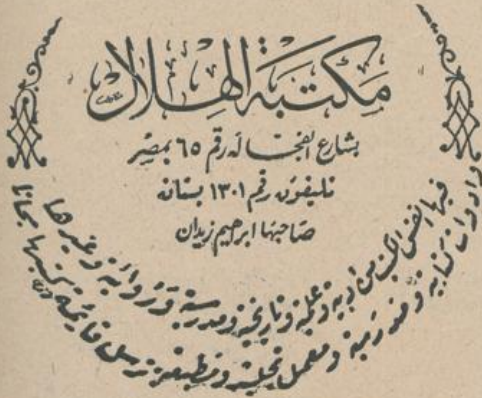 مكتبة الهلال
بشارع الفجالة رقم ٦٥ بمصر
تليفون رقم ١٣٠١ بستان
صاحبها ابرهيم زيدان
فيها انفس الكتب من ادبية وعلمية وتاريخية ومدرسية وروائية وغيرها
وادوات كتابية ومدرسية ومعمل تجليد ومطبعة ترسل قائمة كتبها مجانا